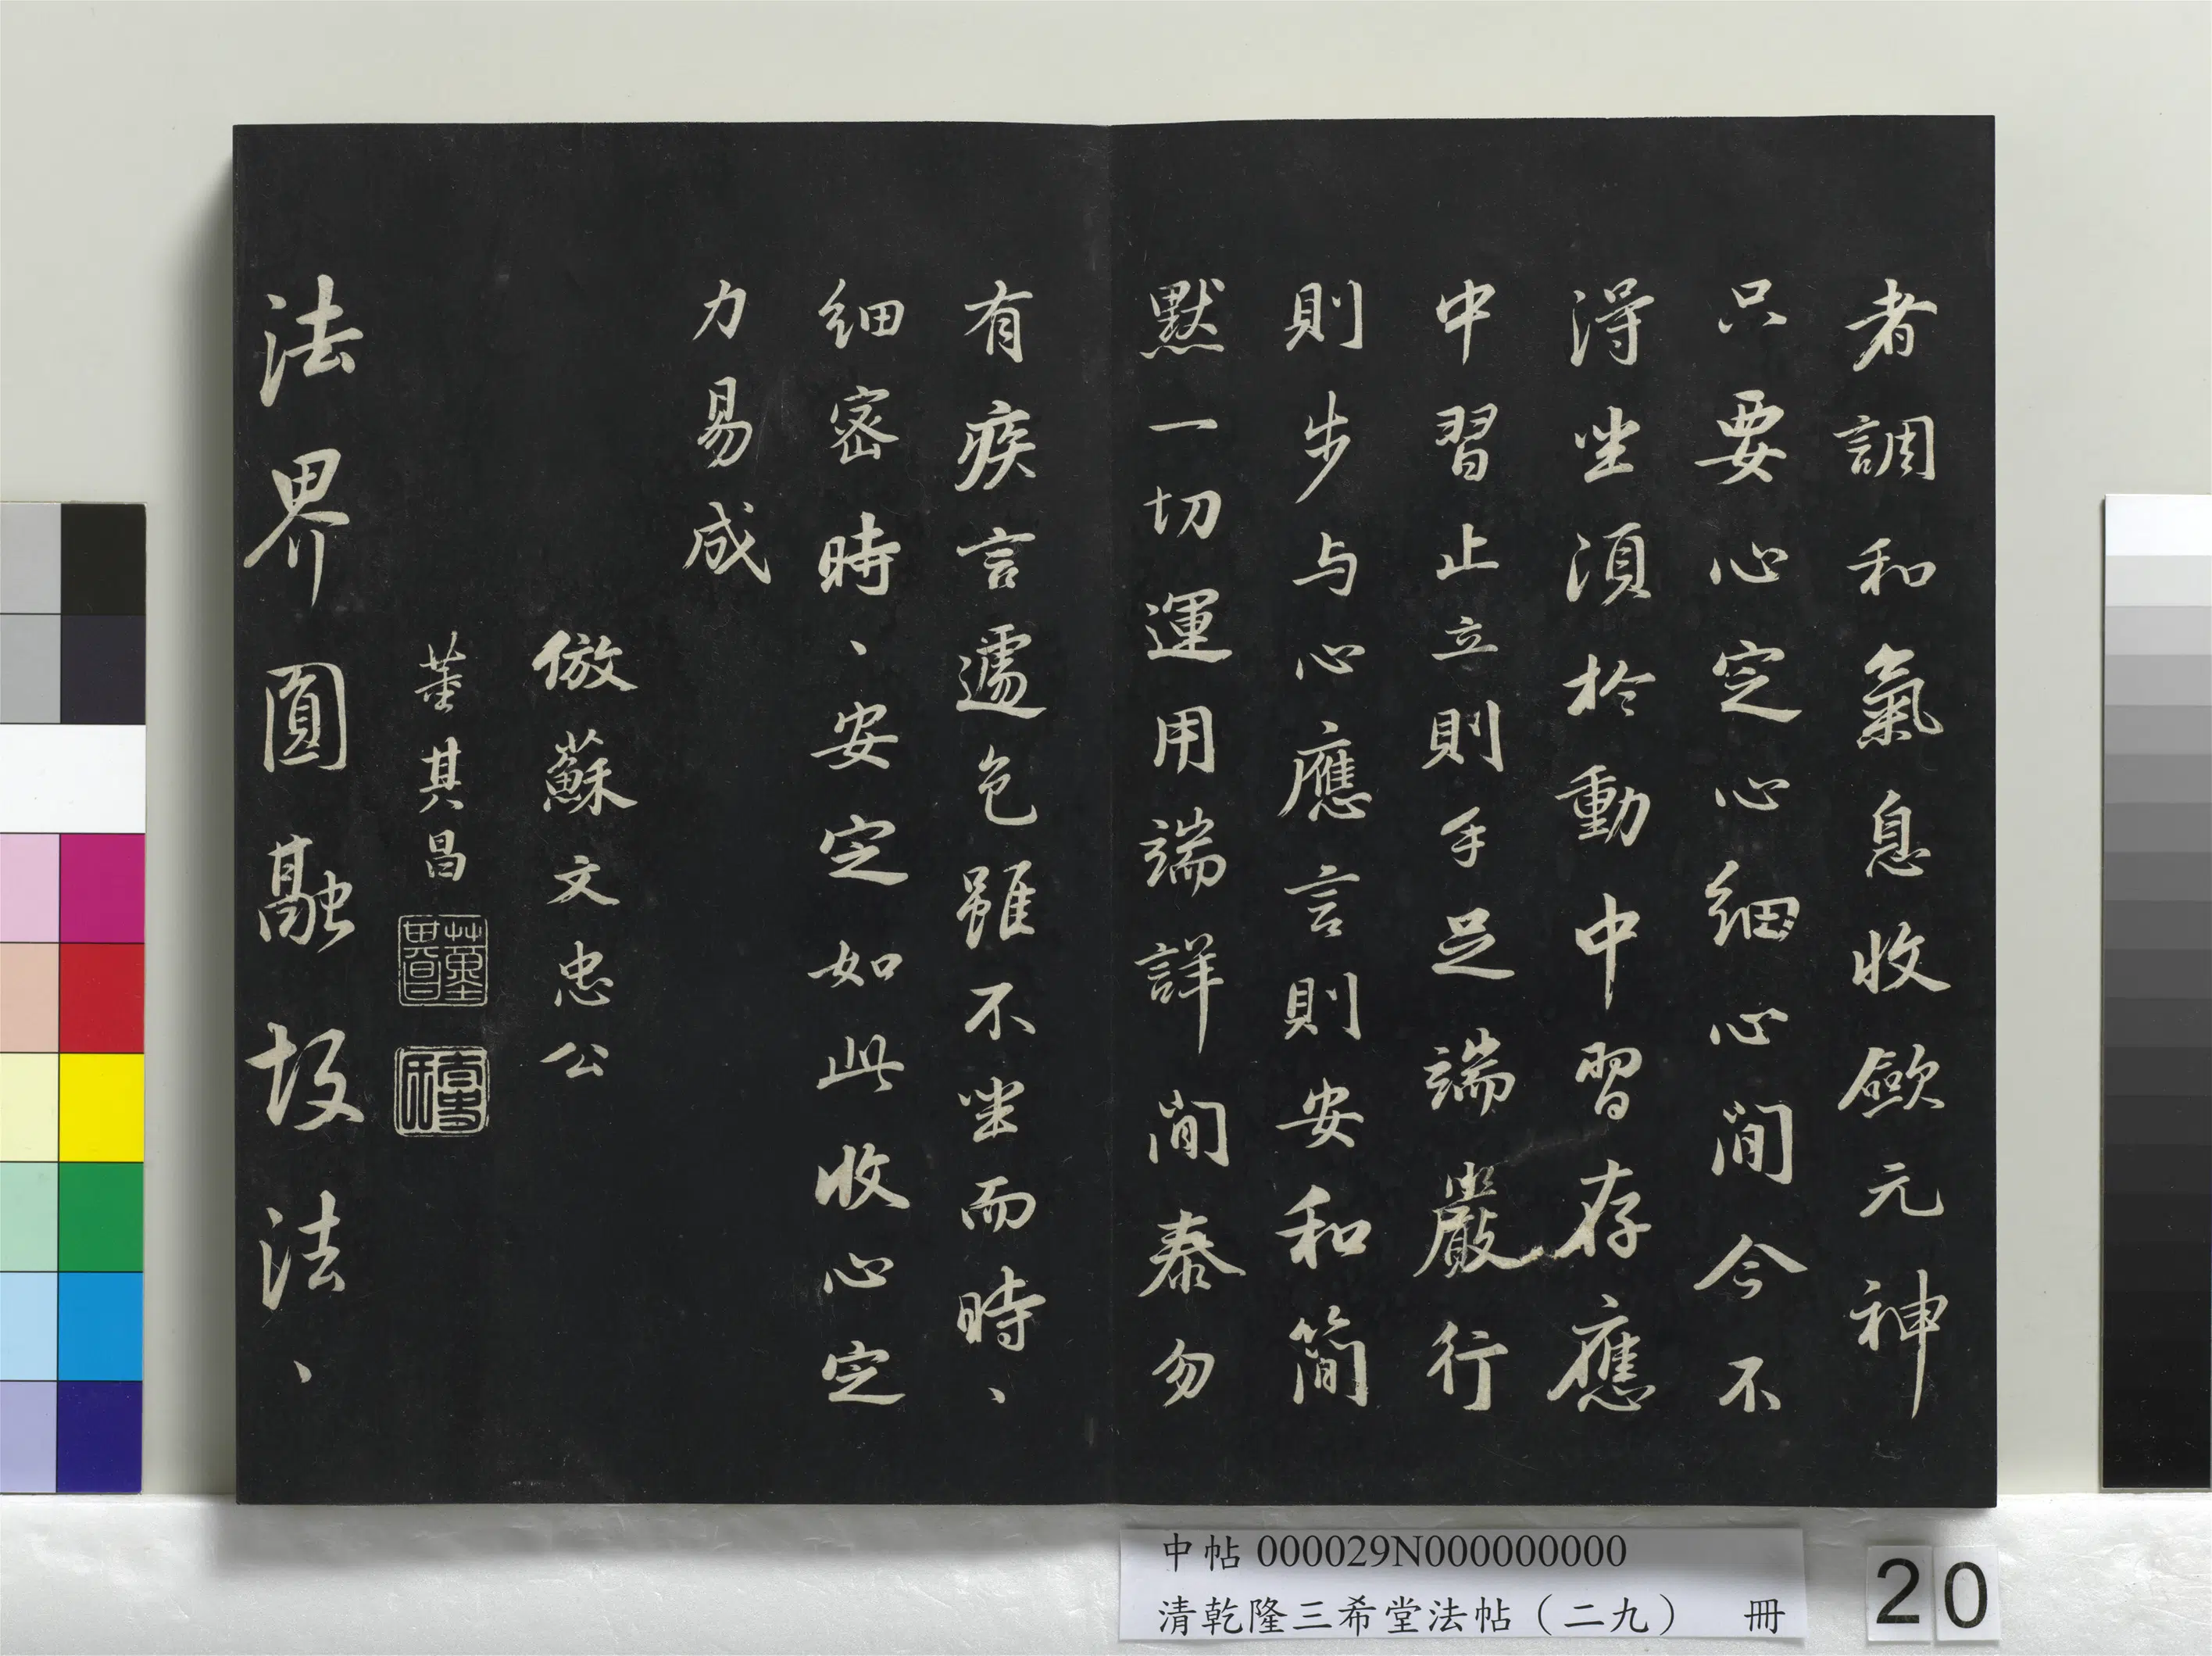 者調和氣息收歛元神
只要心定心細心閒今不
得坐須於動中習存應
中習止立則手足端嚴行
則步与心應言則安和簡
默一切運用端詳閒泰勿
有疾言遽色雖不坐而時、
細密時、安定如此收心定
力易成
倣蘇文忠公
董其昌
法界圓融故法、
中帖 000029N000000000
清乾隆三希堂法帖（二九） 冊
20